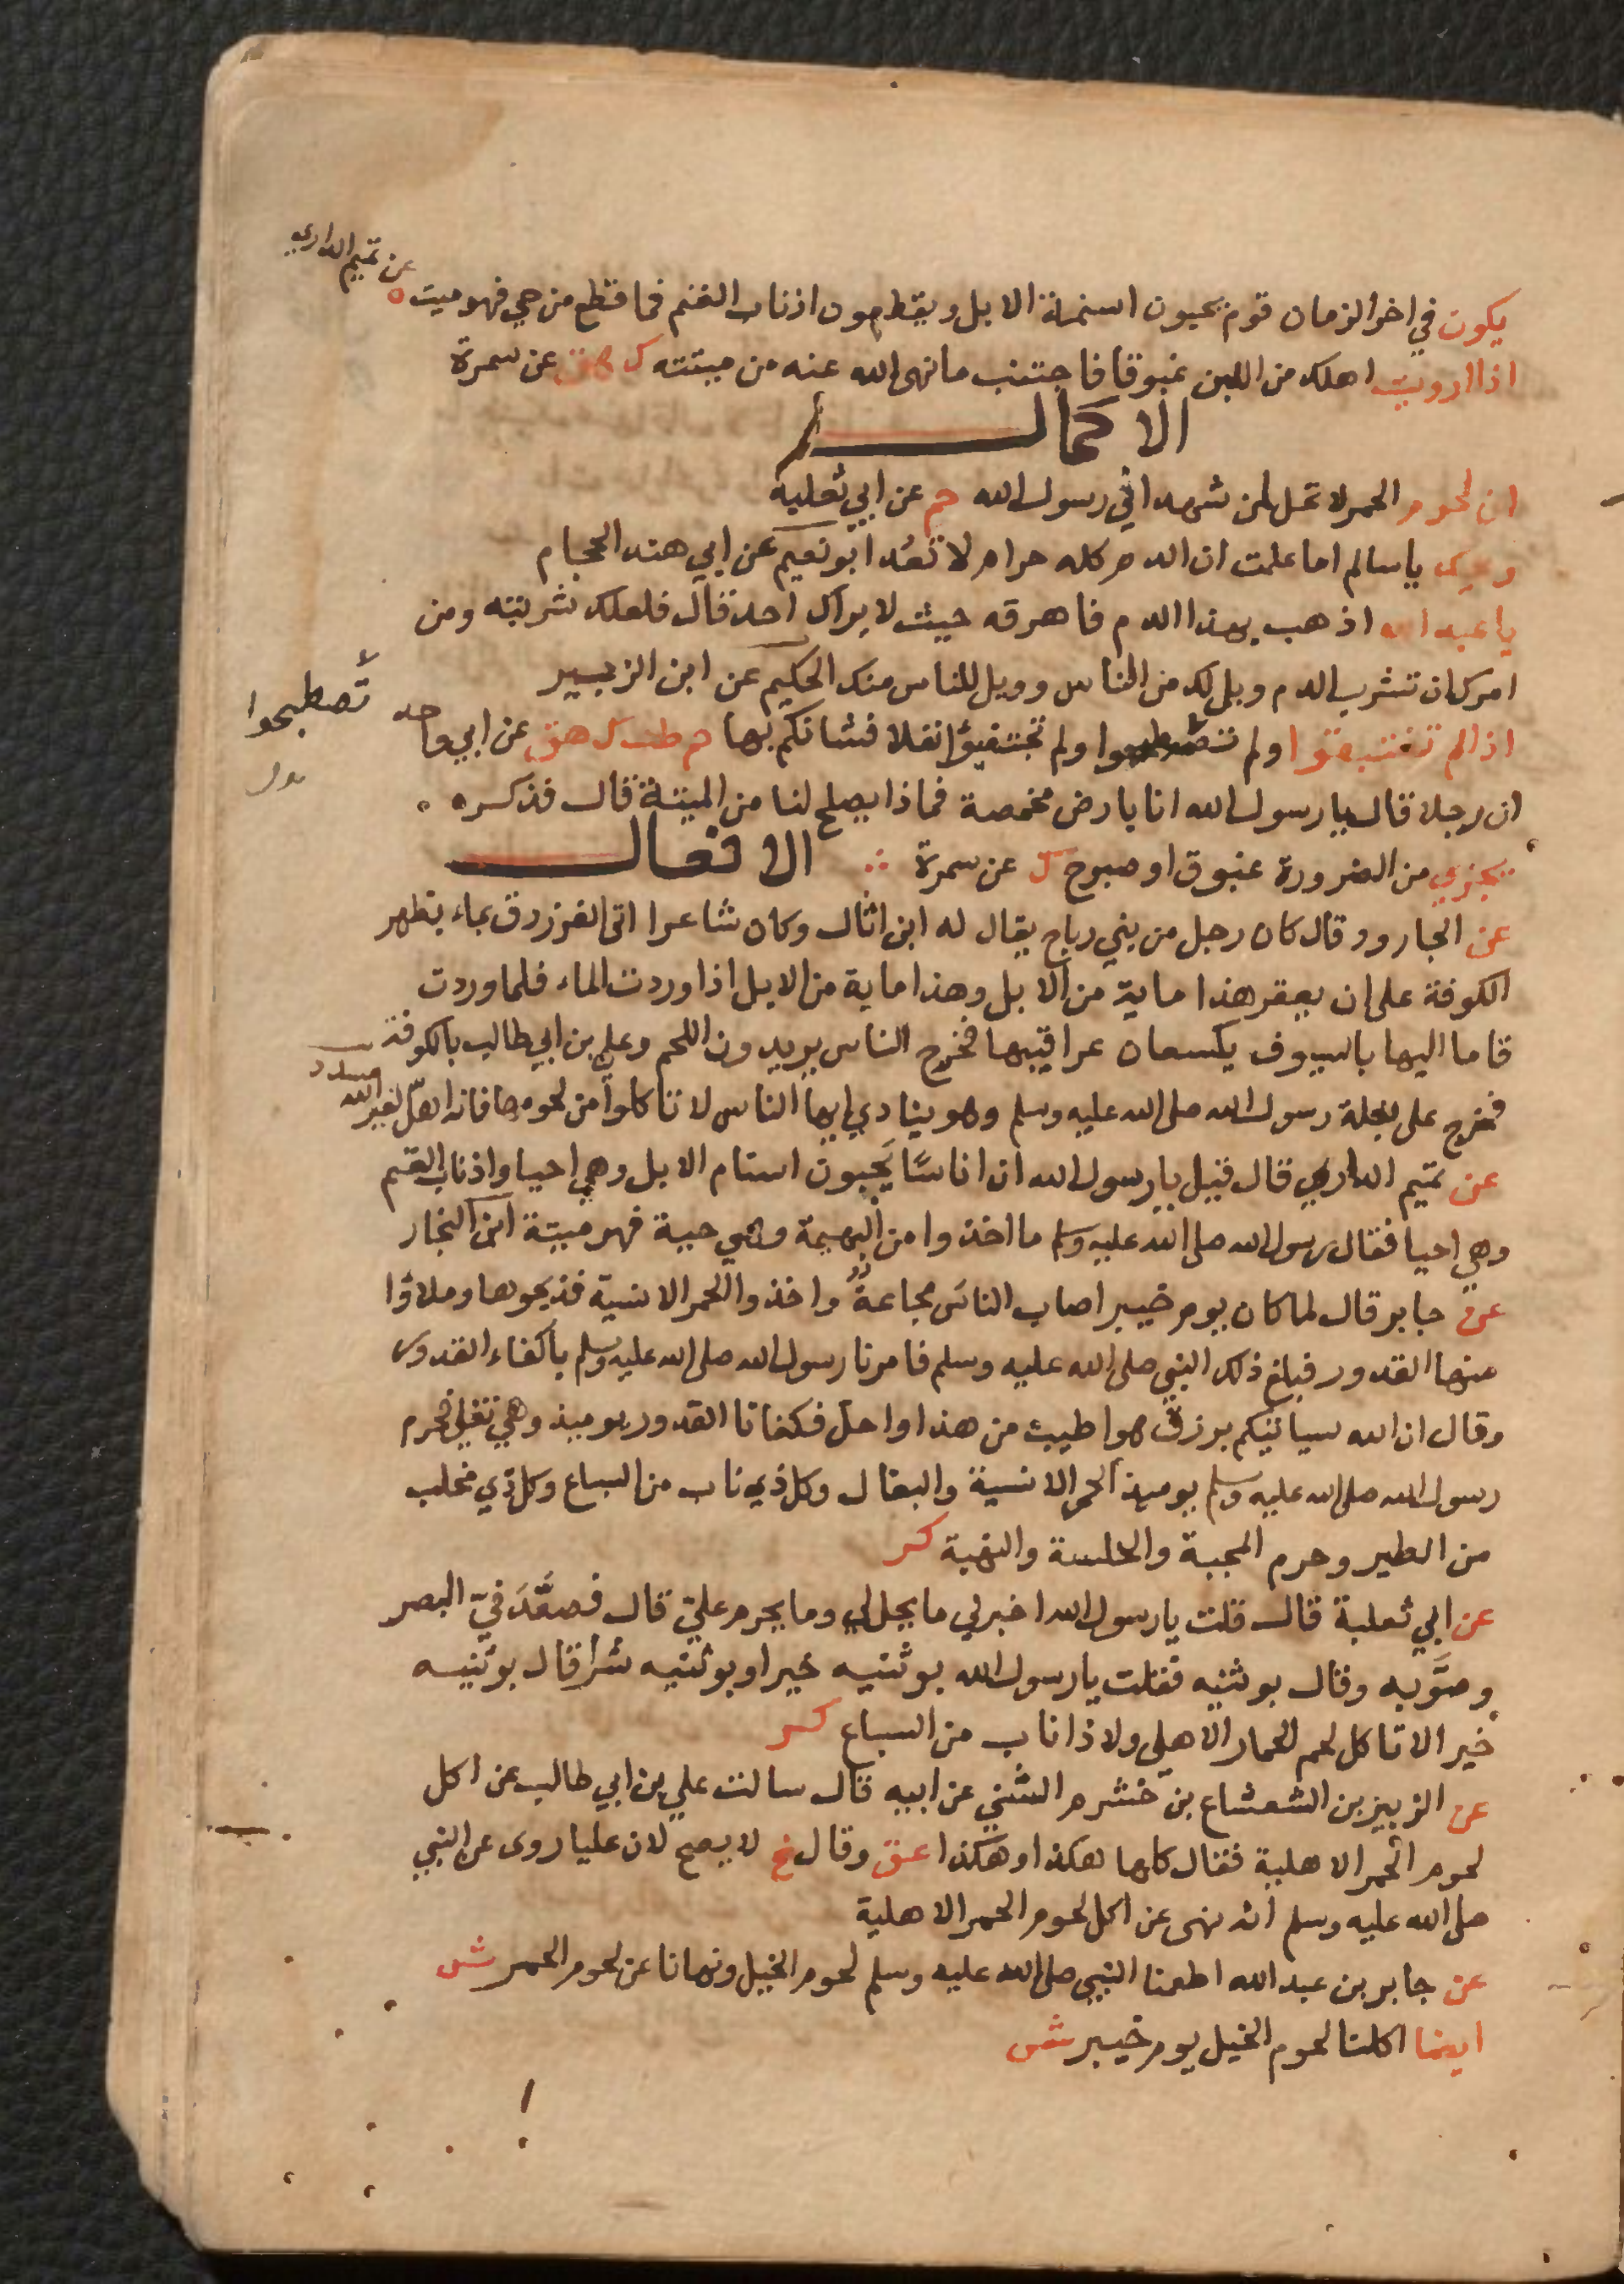 يكون في اخر الزمان قوم يحبون اسنمة الابل ويقطعون اذناب الغنم فما قطع من حي فهو ميت ه عن تميم الداري
اذا ارويت اهلك من اللبن غبوقا فاجتنب ما نهى الله عنه من ميتته ك هق عن سمرة
الاكمال
ان لحوم الحمر لا تحل لمن شهد اني رسول الله حم عن ابي ثعلبه
ويحك يا سالم اما علمت ان الدم كله حرام لا تعد ابو نعيم عن ابي هند الحجام
يا عبد الله اذهب بهذا الدم فاهرقه حيث لا يراك احد قال فلعلك شربته ومن
امرك ان تشرب الدم ويل لك من الناس وويل للناس منك الحكيم عن ابن الزبير
اذا لم تغتبقوا ولم تصطبحوا ولم تجتفيؤا بقلا فشانكم بها حم طب ك هق عن ابي واحد
تصطبحوا
ان رجلا قال يا رسول الله انا بارض مخمصة فماذا يصلح لنا من الميتة قال فذكره
يجزي من الضرورة غبوق او صبوح ك عن سمرة الافعال
عن الجارود قال كان رجل من بني رباح يقال له ابن اثال وكان شاعرا اتى الفرزدق بماء بظهر
الكوفة على ان يعقر هذا ماية من الابل وهذا ماية من الابل اذا وردت الماء فلما وردت
قاما اليها بالسيوف يكسعان عراقيبها فخرج الناس يريدون اللحم وعلي بن ابي طالب بالكوفة
فخرج على بغلة رسول الله صلى الله عليه وسلم وهو ينادي ايها الناس لا تاكلوا من لحومها فانه اهل لغير الله مسدد
عن تميم الداري قال قيل يا رسول الله ان اناسا يجبون اسنام الابل وهي احيا واذناب الغنم
وهي احيا فقال رسول الله صلى الله عليه وسلم ما اخذوا من البهيمة وهي حية فهو ميتة ابن النجار
عن جابر قال لما كان يوم خيبر اصاب الناس مجاعة واخذوا الحمر الانسية فذبحوها وملاؤا
منها القدور فبلغ ذلك النبي صلى الله عليه وسلم فامرنا رسول الله صلى الله عليه وسلم باكفاء القدور
وقال ان الله سياتيكم برزق هو اطيب من هذا واحل فكفانا القدور يوميذ وهي تغلي فحرم
رسول الله صلى الله عليه وسلم يوميذ الحمر الانسية والبغال وكل ذي ناب من السباع وكل ذي مخلب
من الطير وحرم المجبة والخلسة والنهبة كر
عن ابي ثعلبة قال قلت يا رسول الله اخبرني ما يحل لي وما يحرم علي قال فصعد في البصر
وصوبه وقال بوثنيه فقلت يا رسول الله بوثنيه خيرا وبوثنيه شرا قال بوثنيه
خير الا تاكل لحم الحمار الاهلي ولا ذا ناب من السباع كر
عن الزبير بن الشعشاع بن خشرم الشني عن ابيه قال سالت علي بن ابي طالب عن اكل
لحوم الحمر الاهلية فقال كلها هكذا وهكذا عق وقال خ لا يصح لان عليا روى عن النبي
صلى الله عليه وسلم انه نهى عن اكل لحوم الحمر الاهلية
عن جابر بن عبد الله اطعمنا النبي صلى الله عليه وسلم لحوم الخيل ونهانا عن لحوم الحمر ش
ايضا اكلنا لحوم الخيل يوم خيبر ش